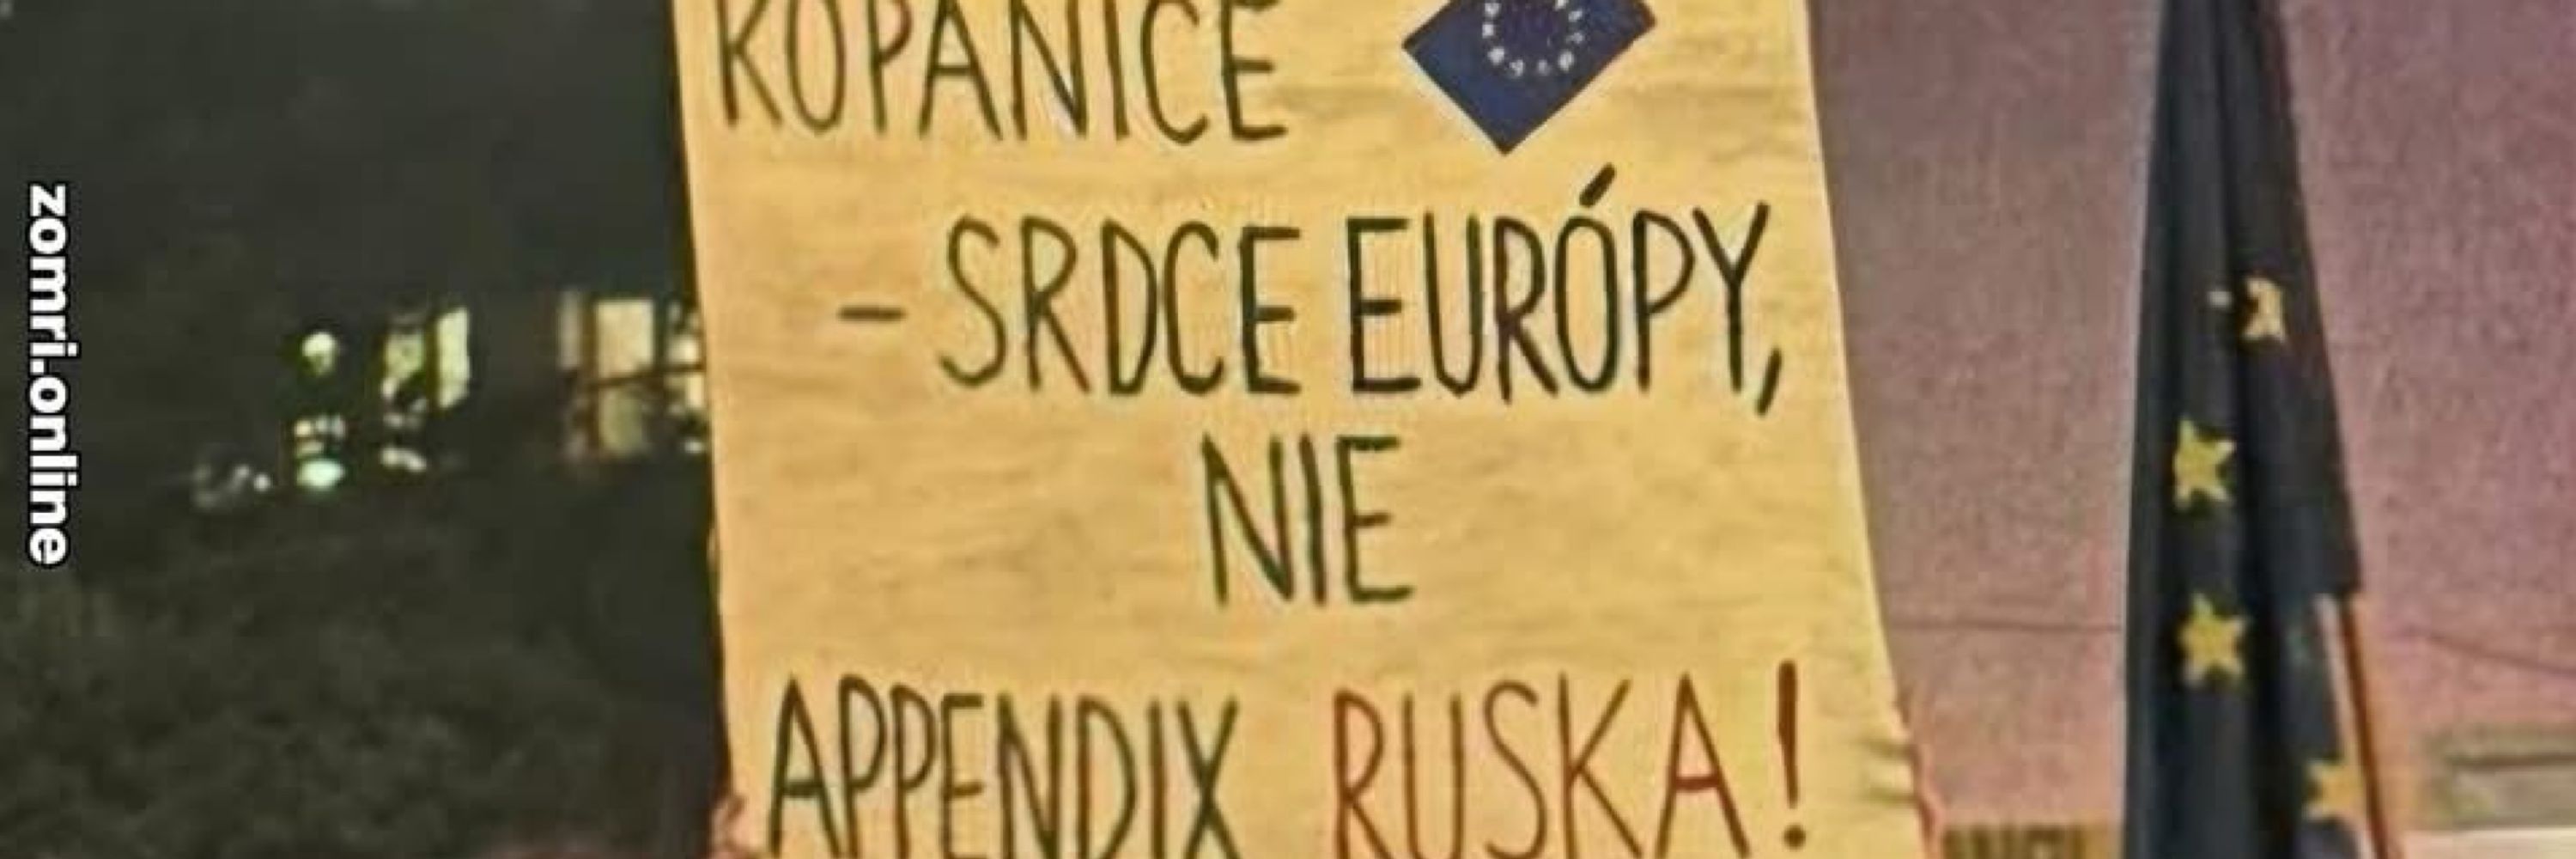 KOPANICE
- SRDCE EURÓPY,
NIE
APPENDIX RUSKA!
zomri.online